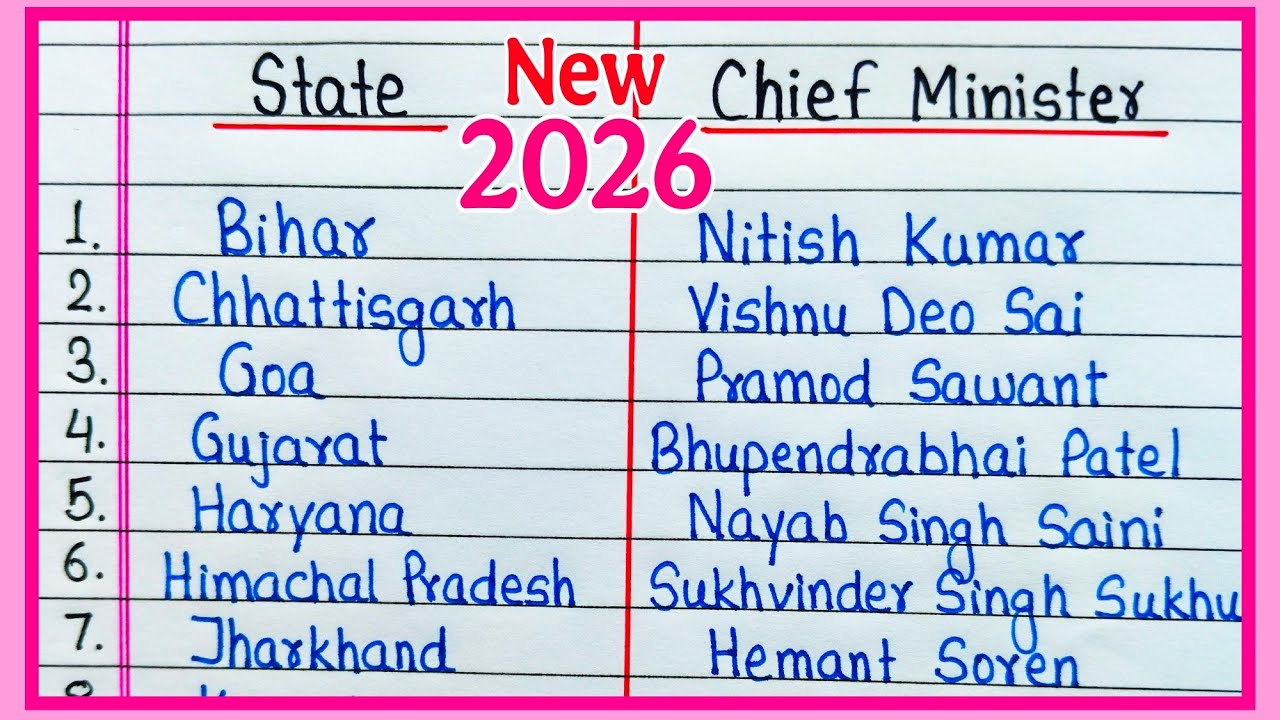 State New Chief Minister
2026
1. Bihar Nitish Kumar
2. Chhattisgarh Vishnu Deo Sai
3. Goa Pramod Sawant
4. Gujarat Bhupendrabhai Patel
5. Haryana Nayab Singh Saini
6. Himachal Pradesh Sukhvinder Singh Sukhu
7. Jharkhand Hemant Soren